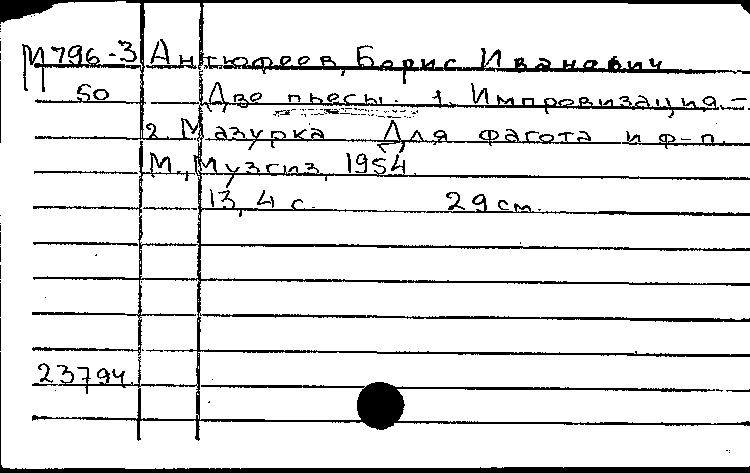 М796-3 Антюфеев, Борис Иванович
50 Две пьесы. 1. Импровизация. –
2. Мазурка Для фагота и ф-п.
М., Музгиз, 1954.
13, 4 с. 29 см.
23794.